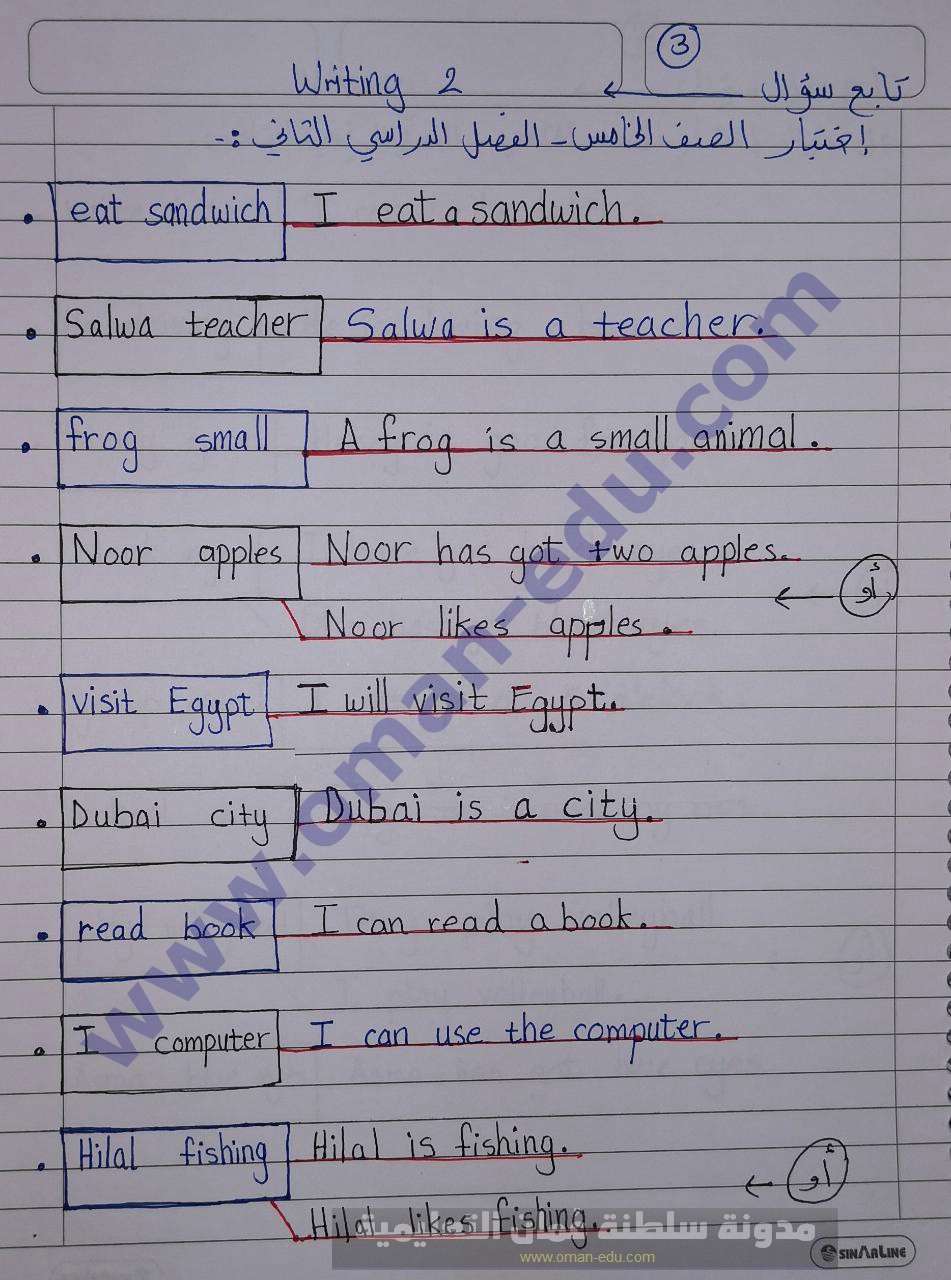 ③
Writing 2 ← تابع سؤال
إختبار الصف الخامس - الفصل الدراسي الثاني :-
• eat sandwich I eat a sandwich.
• Salwa teacher Salwa is a teacher.
• frog small A frog is a small animal.
• Noor apples Noor has got two apples.
← أو
Noor likes apples.
• visit Egypt I will visit Egypt.
• Dubai city Dubai is a city.
• read book I can read a book.
• I computer I can use the computer.
• Hilal fishing Hilal is fishing.
← أو
Hilal likes fishing.
www.oman-edu.com
مدونة سلطنة عمان التعليمية
www.oman-edu.com
SINARLINE